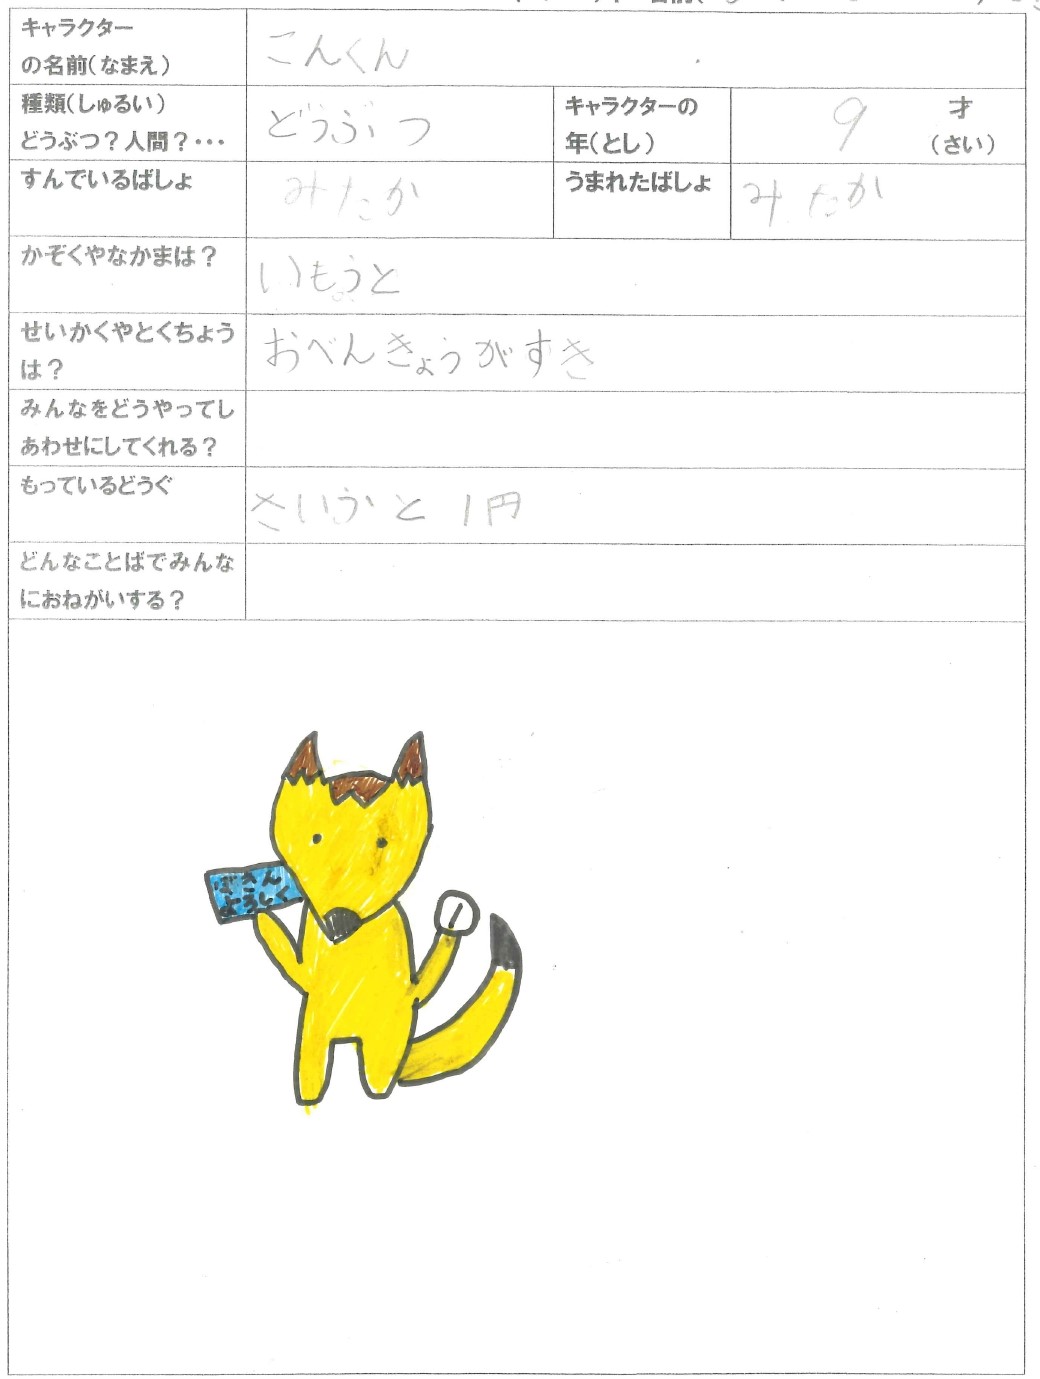 キャラクター
の名前(なまえ)
こんくん
種類(しゅるい)
どうぶつ?人間?・・・
どうぶつ
キャラクターの
年(とし)
9
才
(さい)
すんでいるばしょ
みたか
うまれたばしょ
みたか
かぞくやなかまは?
いもうと
せいかくやとくちょう
は?
おべんきょうがすき
みんなをどうやってし
あわせにしてくれる?
もっているどうぐ
さいふと1円
どんなことばでみんな
におねがいする?
ぼきん
よろしく
1